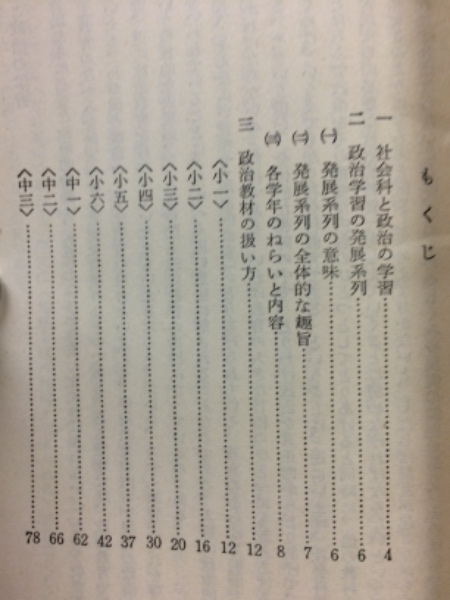 もくじ
一 社会科と政治の学習……4
二 政治学習の発展系列……6
㈠ 発展系列の意味……6
㈡ 発展系列の全体的な趣旨……7
㈢ 各学年のねらいと内容……8
三 政治教材の扱い方……12
〈小一〉……12
〈小二〉……16
〈小三〉……20
〈小四〉……30
〈小五〉……37
〈小六〉……42
〈中一〉……62
〈中二〉……66
〈中三〉……78